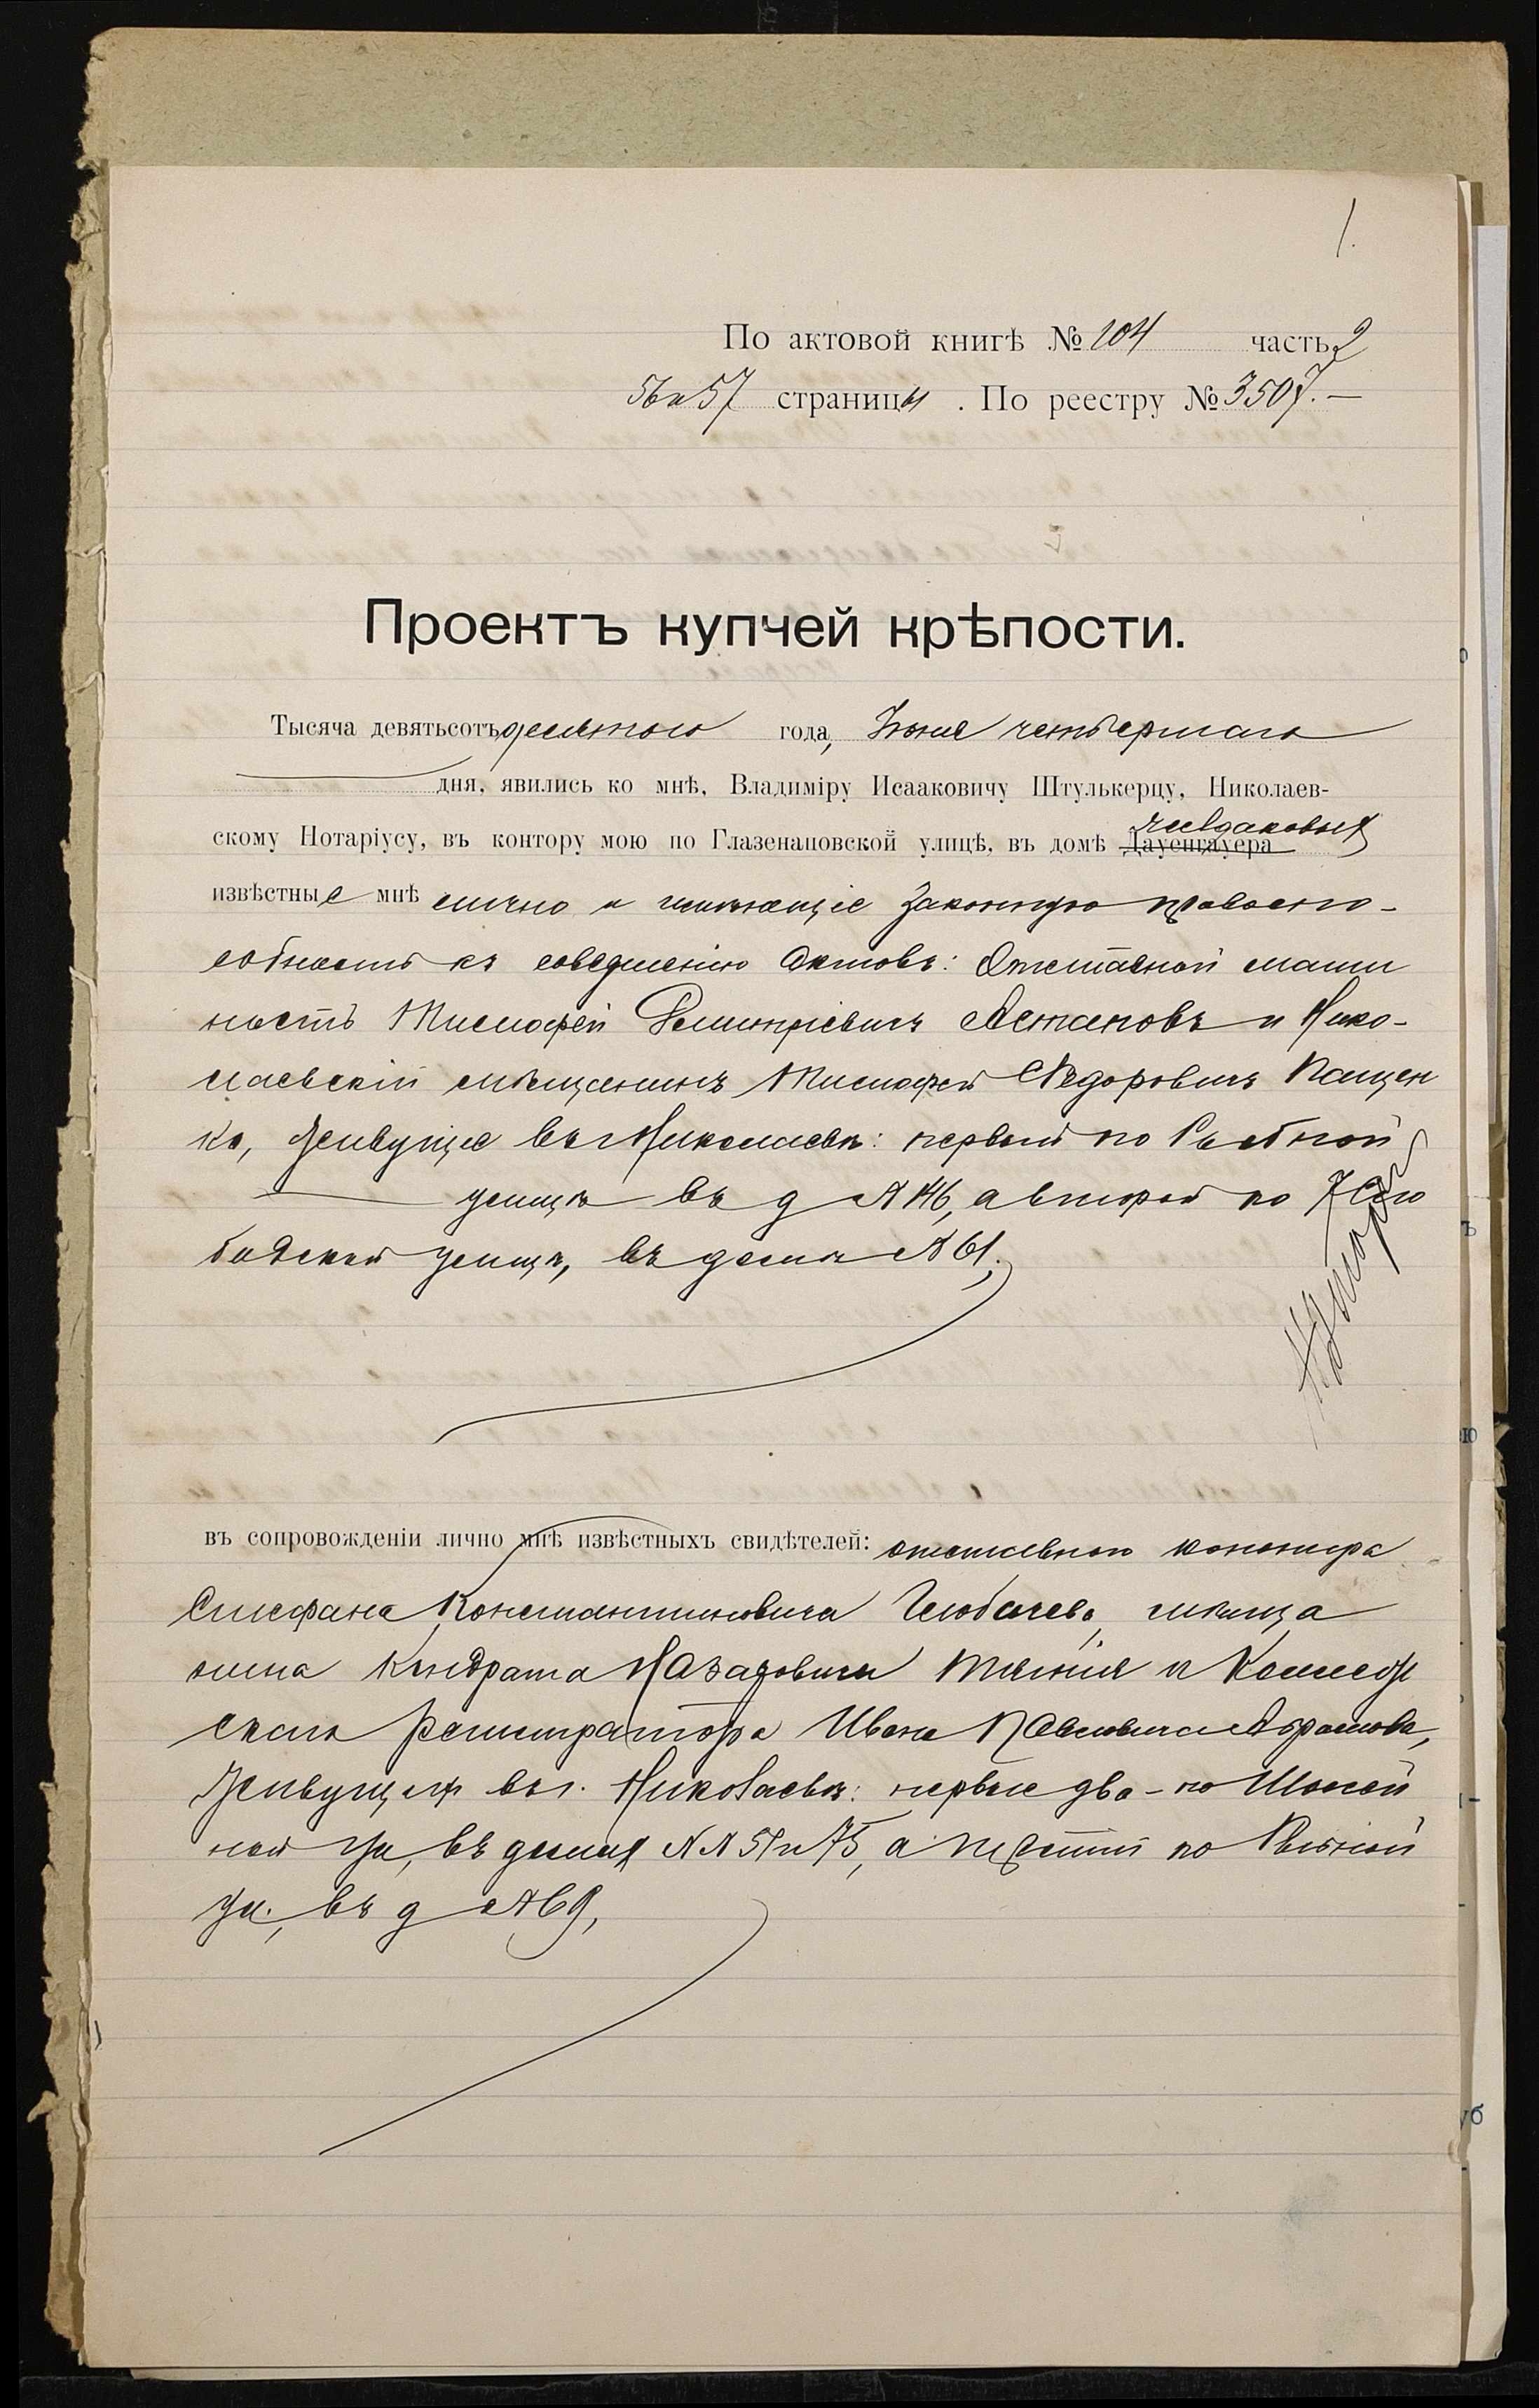 1.
По актовой книгѣ № 104 часть 2
56 и 57 страницы. По реестру № 3507. —
Проектъ купчей крѣпости.
Тысяча девятьсотъ десятаго года, Іюня четвертаго
дня, явились ко мнѣ, Владиміру Исааковичу Штулькерцу, Николаев-
скому Нотаріусу, въ контору мою по Глазенаповской улицѣ, въ домѣ Дауенгауера
извѣстные мнѣ лично и имѣющіе законную правоспо-
собность къ совершенію актовъ: Отставной маши
нистъ Тимофей Димитріевичъ Астаповъ и Нико-
лаевскій мѣщанинъ Тимофей Ѳедоровичъ Пащен
ко, живущіе въ г. Николаевѣ: первый по Рыбной
улицѣ въ д № 46, а второй по 7 Сло
бодской улицѣ, въ домѣ № 61,
въ сопровожденіи лично мнѣ извѣстныхъ свидѣтелей: отставного
Стефана Константиновича мѣща
нина Кондрата Назаровича и Коллеж
скаго регистратора Ивана Павловича Абрамова,
живущихъ въ г. Николаевѣ: первые два - по
ной ул, въ домахъ №№ 51 и 75, а третій по
ул., въ д № 69,